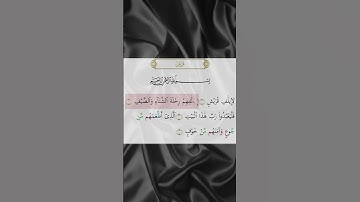 قريش
بسم الله الرحمن الرحيم
لِإِيلَٰفِ قُرَيْشٍ ۝ إِۦلَٰفِهِمْ رِحْلَةَ ٱلشِّتَآءِ وَٱلصَّيْفِ ۝
فَلْيَعْبُدُوا۟ رَبَّ هَٰذَا ٱلْبَيْتِ ۝ ٱلَّذِىٓ أَطْعَمَهُم مِّن
جُوعٍ وَءَامَنَهُم مِّنْ خَوْفٍۭ ۝